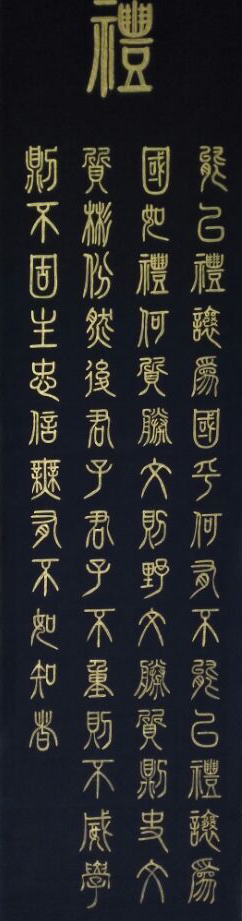 禮
能以禮讓爲國乎何有不能以禮讓爲
國如禮何質勝文則野文勝質則史文
質彬份然後君子君子不重則不威學
則不固主忠信無有不如知者